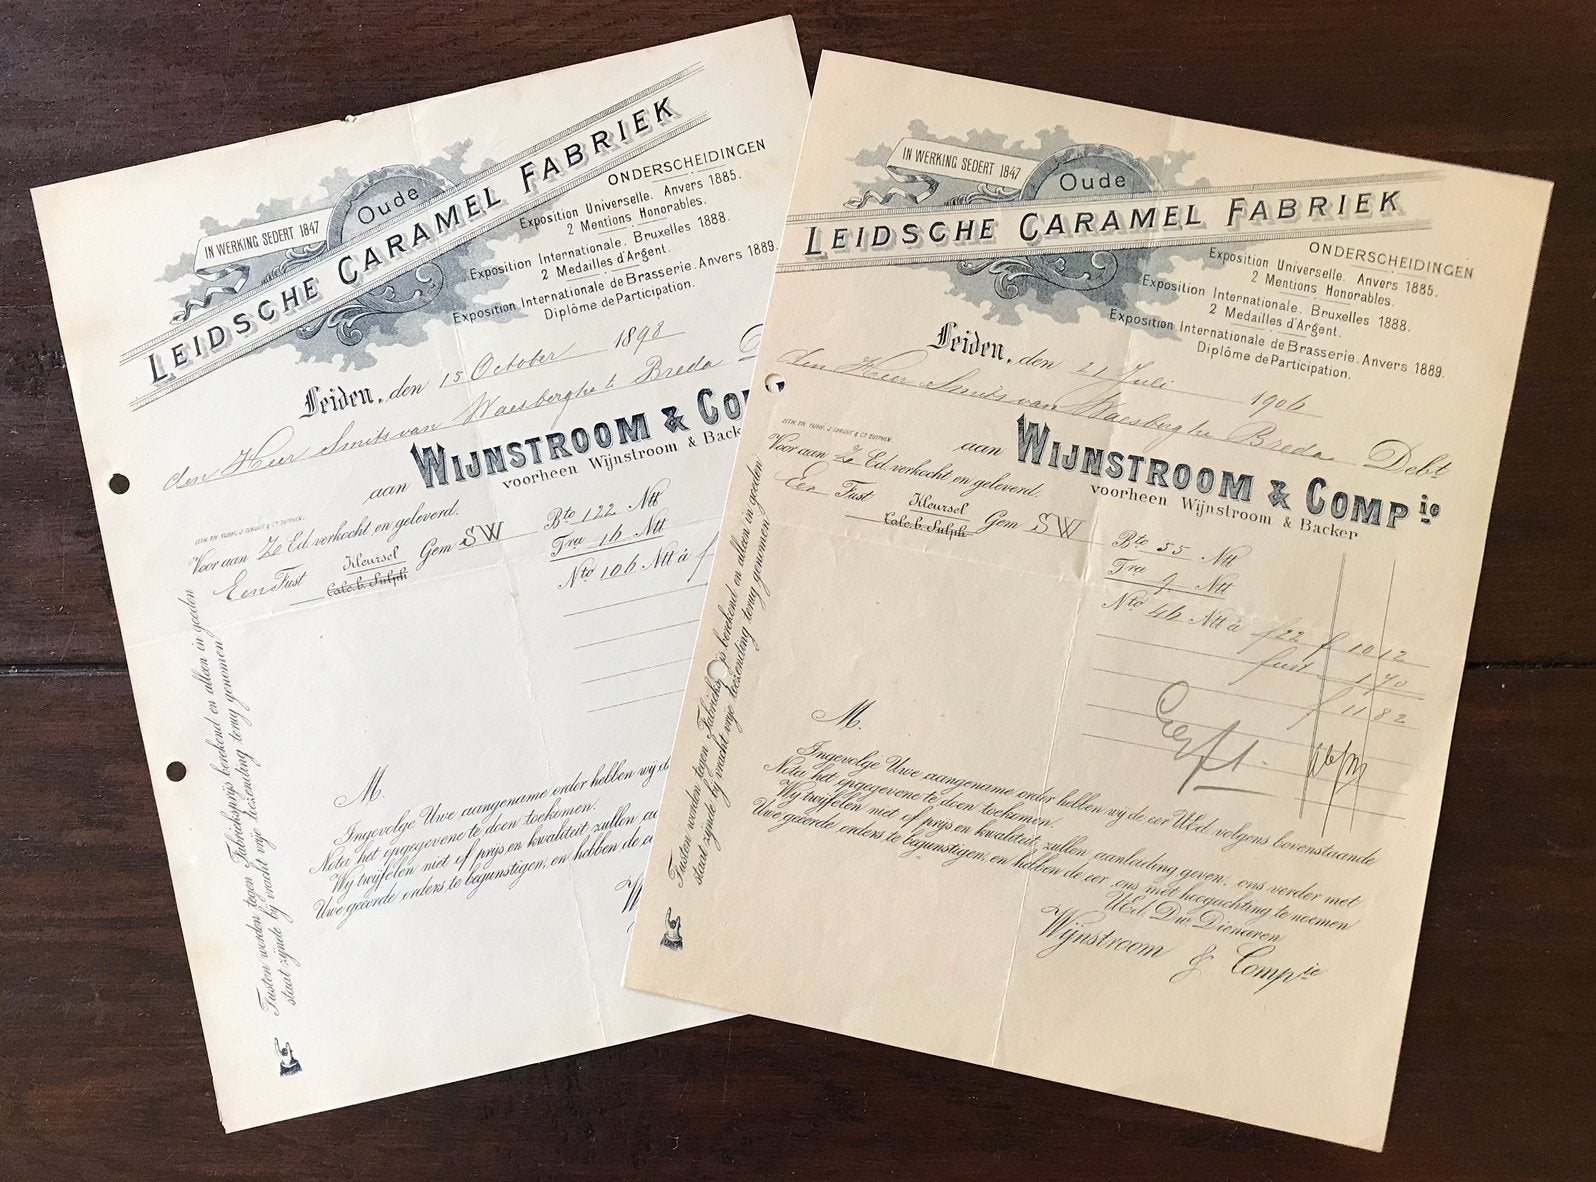 IN WERKING SEDERT 1847
Oude
LEIDSCHE CARAMEL FABRIEK
ONDERSCHEIDINGEN
Exposition Universelle. Anvers 1885.
2 Mentions Honorables.
Exposition Internationale. Bruxelles 1888.
2 Medailles d'Argent.
Exposition Internationale de Brasserie. Anvers 1889.
Diplôme de Participation.
Leiden, den 15 October 1898
den Heer Smits van Waesberghe te Breda D
aan WIJNSTROOM & Co
voorheen Wijnstroom & Back
LITH. EN TYPOGR. J. SPRUIJT & Co ZUTPHEN.
Voor aan Ze Ed. verkocht en geleverd.
Een Fust Kleursel Gem SW Bto 122 Ntt
Calc. b. Sulph Tra 16 Ntt
Nto 106 Ntt à f
Fusten worden tegen Fabrieksprijs berekend en alleen in goeden
staat zijnde bij vracht vrije toezending terug genomen
M.
Ingevolge Uwe aangename order hebben wij de
Nota het opgegevene te doen toekomen.
Wij twijfelen niet of prijs en kwaliteit zullen aa
Uwe geëerde orders te begunstigen, en hebben de e
W
IN WERKING SEDERT 1847
Oude
LEIDSCHE CARAMEL FABRIEK
ONDERSCHEIDINGEN
Exposition Universelle. Anvers 1885.
2 Mentions Honorables.
Exposition Internationale. Bruxelles 1888.
2 Medailles d'Argent.
Exposition Internationale de Brasserie. Anvers 1889.
Diplôme de Participation.
Leiden, den 21 Juli 1906
den Heer Smits van Waesberghe Breda Debt
aan WIJNSTROOM & COMPie
voorheen Wijnstroom & Backer
Voor aan Ze Ed. verkocht en geleverd.
Een Fust Kleursel Gem SW Bto 55 Ntt
Calc. b. Sulph Tra 9 Ntt
Nto 46 Ntt à f 22 f 10 12
fust 1 70
f 11 82
Fusten worden tegen Fabrieksprijs berekend en alleen in goeden
staat zijnde bij vracht vrije toezending terug genomen
M.
Ingevolge Uwe aangename order hebben wij de eer UEd. volgens bovenstaande
Nota het opgegevene te doen toekomen.
Wij twijfelen niet of prijs en kwaliteit zullen aanleiding geven, ons verder met
Uwe geëerde orders te begunstigen, en hebben de eer ons met hoogachting te noemen
UEd. Dw. Dienaren
Wijnstroom & Compie